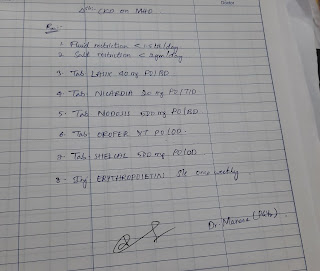 Doctor
CKD on MHD
Rx:-
1. Fluid restriction <
2. Salt restriction < 2gm/day
3- Tab LASIX 40 mg PO/BD
4- Tab NICARDIA 20 mg PO/TID
5- Tab NODOSIS 500 mg PO/BD
6 Tab OROFER XT PO/OD
7- Tab SHELCAL 500 mg PO/OD
8- Inj ERYTHROPOIETIN once weekly
Dr.